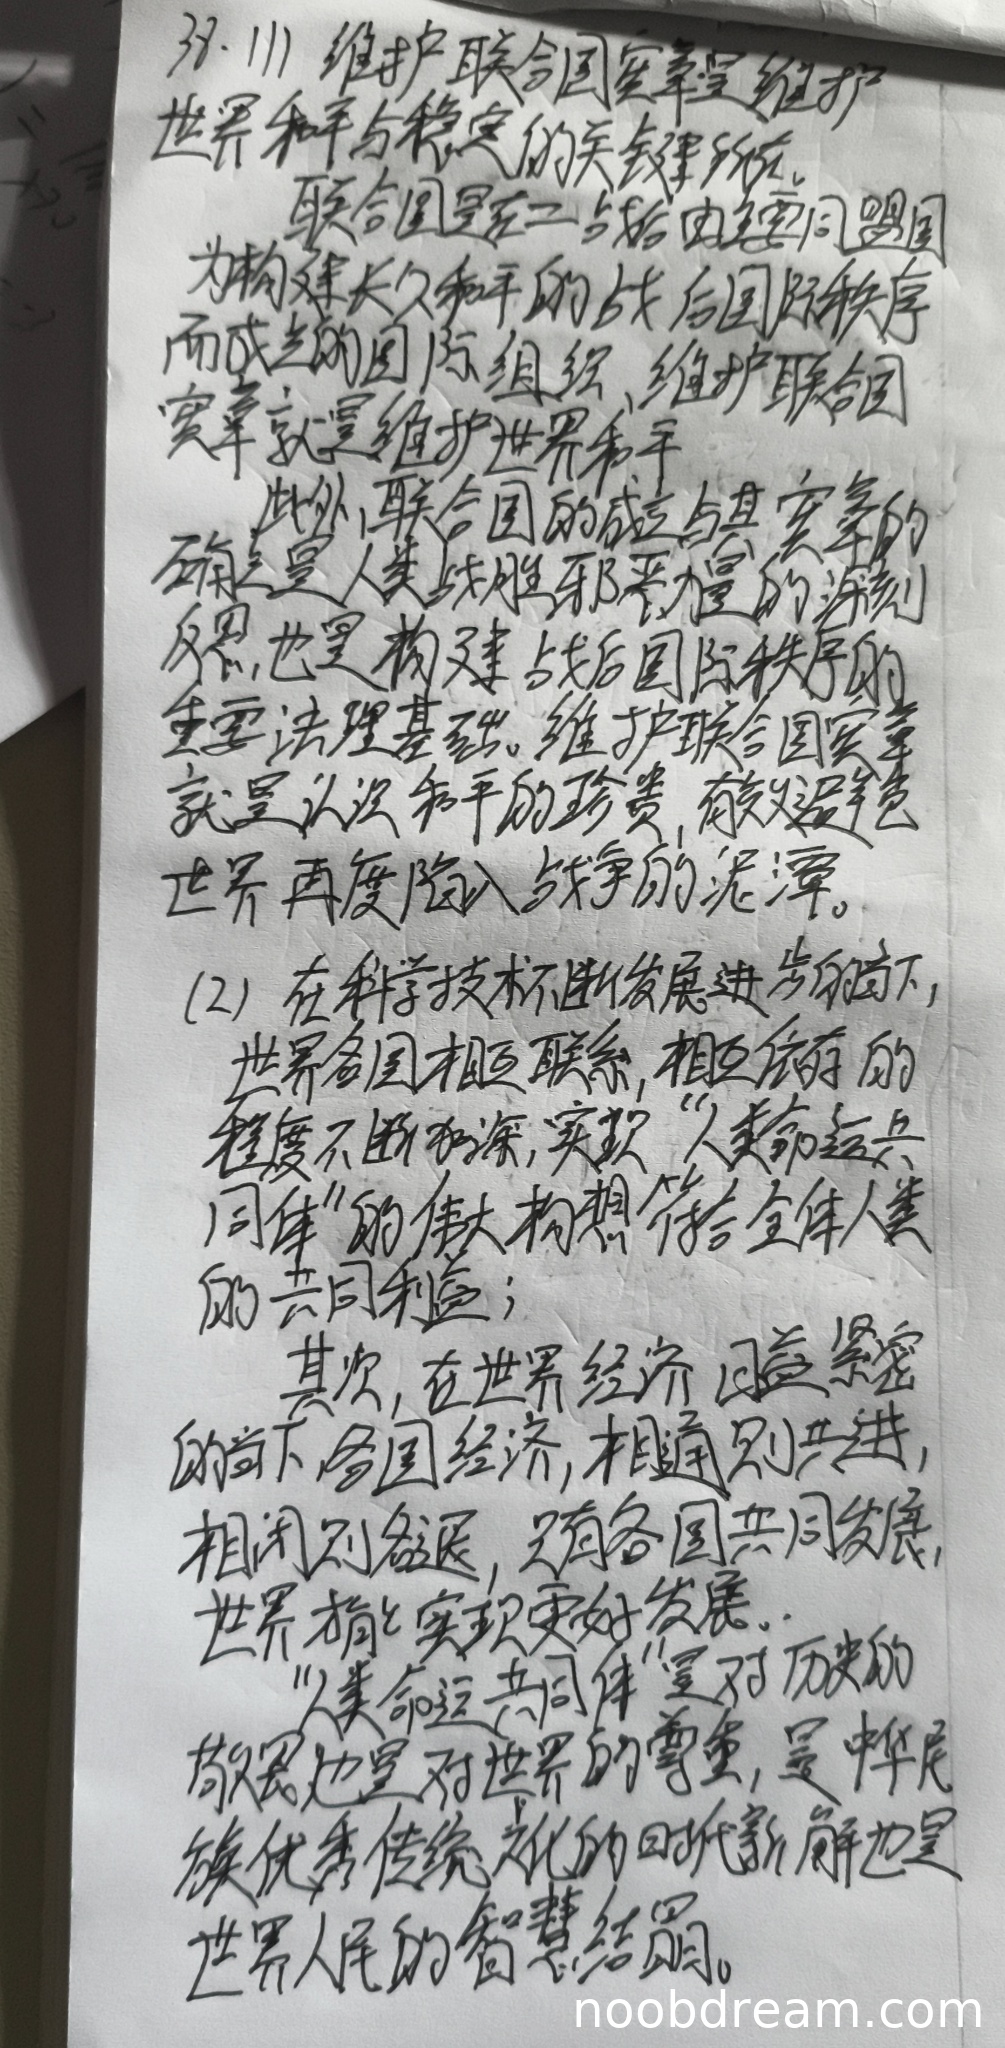 38.(1) 维护联合国宪章是维护
世界和平与稳定的关键所在。
联合国是在二战后由主要同盟国
为构建长久和平的战后国际秩序
而成立的国际组织、维护联合国
宪章就是维护世界和平
此外,联合国的成立与其宪章的
确立是人类战胜邪恶力量的深刻
反思,也是构建战后国际秩序的
主要法理基础。维护联合国宪章
就是认识和平的珍贵,有效避免
世界再度陷入战争的泥潭。
(2) 在科学技术不断发展进步的当下,
世界各国相互联系,相互依存的
程度不断加深,实现“人类命运共
同体”的伟大构想符合全体人类
的共同利益;
其次,在世界经济日益紧密
的当下,各国经济,相通则共进,
相闭则各退,只有各国共同发展,
世界才能实现更好发展。
“人类命运共同体”是对历史的
敬畏也是对世界的尊重,是中华民
族优秀传统文化的时代新解也是
世界人民的智慧结晶。
noobdream.com